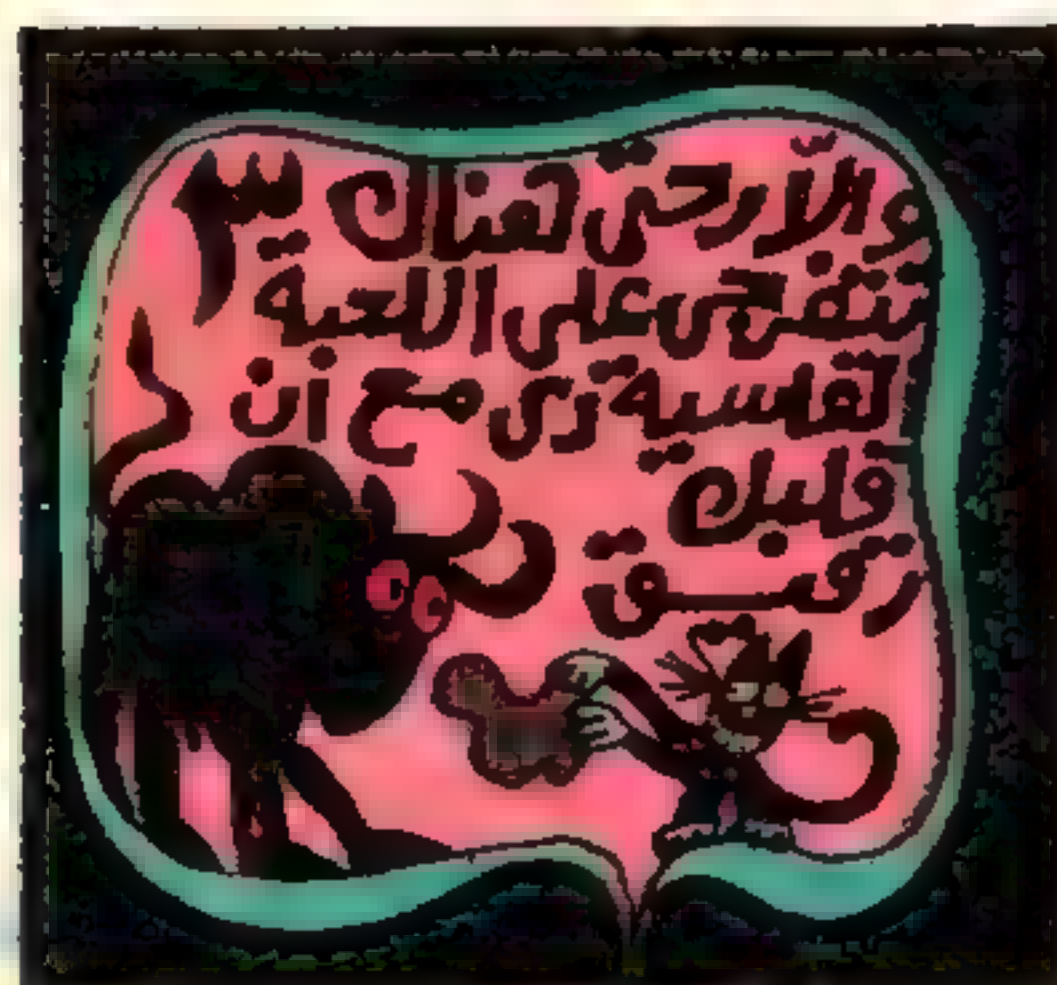 والّا رحتى هناك
تتفرجى على اللعبة
القاسية دى مع ان
قلبك
رقيق
٣